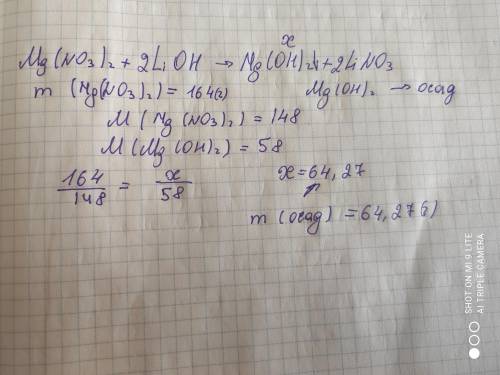 x
Mg(NO₃)₂ + 2LiOH → Mg(OH)₂↓ + 2LiNO₃
m (Mg(NO₃)₂) = 164(г) Mg(OH)₂ → осад
M (Mg(NO₃)₂) = 148
M (Mg(OH)₂) = 58
164/148 = x/58 x = 64,27
m (осад) = 64,27(г)
SHOT ON MI 9 LITE
AI TRIPLE CAMERA